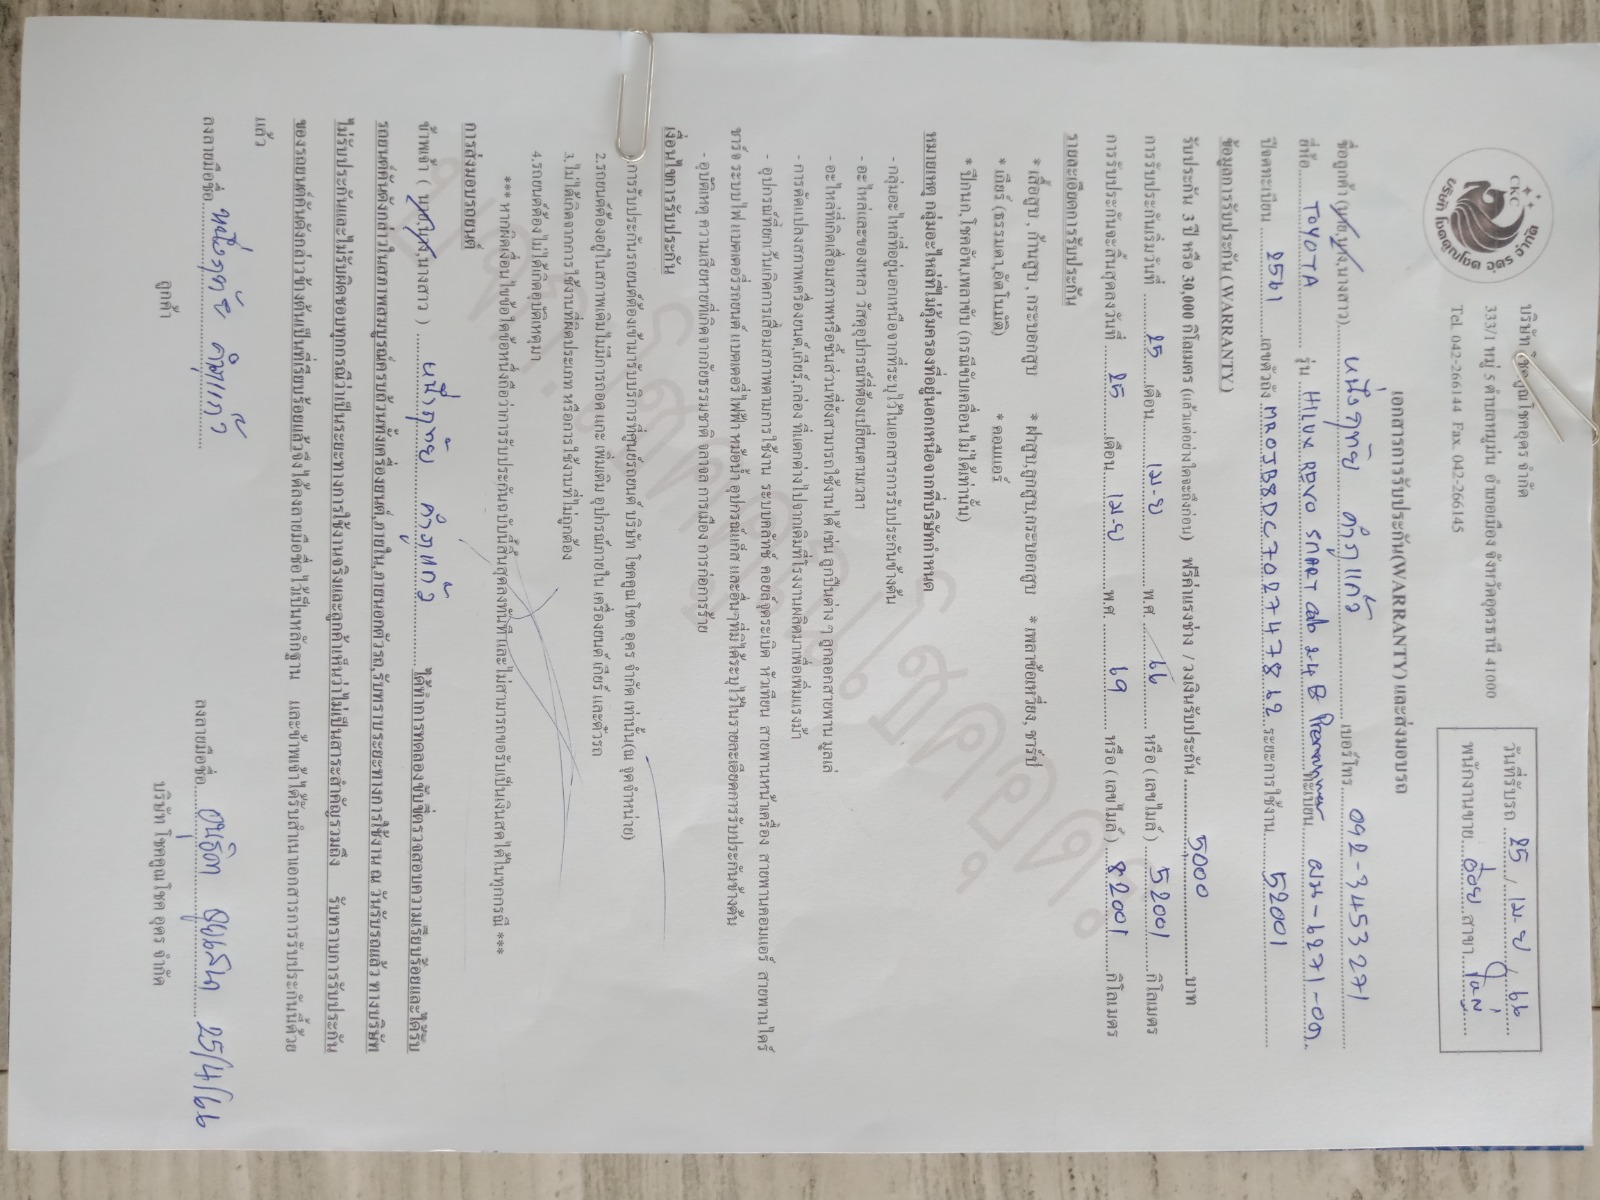 CKC
บริษัท โชคคูณโชค อุดร จำกัด
บริษัท โชคคูณโชคอุดร จำกัด
333/1 หมู่ 5 ตำบลหมูม่น อำเภอเมือง จังหวัดอุดรธานี 41000
Tel. 042-266144 Fax. 042-266145
วันที่รับรถ 25 / เม-ย / 66
พนักงานขาย อ้อย สาขา
เอกสารการรับประกัน(WARRANTY) และส่งมอบรถ
ชื่อลูกค้า (นาย,นาง,นางสาว) หนึ่งฤทัย คำภูแก้ว เบอร์โทร 092-3453271
ยี่ห้อ TOYOTA รุ่น HILUX REVO SMART cab 2.4 ทะเบียน ผม-6271-อด.
ปีจดทะเบียน 2561 เลขตัวถัง MR0JB8DC702747822 ระยะการใช้งาน 52001
ข้อมูลการรับประกัน (WARRANTY)
รับประกัน 3 ปี หรือ 30,000 กิโลเมตร (แล้วแต่อย่างใดจะถึงก่อน) ฟรีค่าแรงช่าง / วงเงินรับประกัน 5,000 บาท
การรับประกันเริ่มวันที่ 25 เดือน เม-ย พ.ศ. 66 หรือ (เลขไมล์) 52001 กิโลเมตร
การรับประกันจะสิ้นสุดลงวันที่ 25 เดือน เม-ย พ.ศ. 69 หรือ (เลขไมล์) 82001 กิโลเมตร
รายละเอียดการรับประกัน
* เสื้อสูบ , ก้านสูบ , กระบอกสูบ * ฝาสูบ,ลูกสูบ,กระบอกสูบ * เพลาข้อเหวี่ยง, ชาร์ป
* เกียร์ (ธรรมดา,อัตโนมัติ) * คอมแอร์
* ปีกนก,โชคอัพ,เพลาขับ (กรณีขับเคลื่อนไม่ได้เท่านั้น)
หมายเหตุ กลุ่มอะไหล่ที่ไม่คุ้มครองที่อยู่นอกเหนือจากที่บริษัทกำหนด
- กลุ่มอะไหล่ที่อยู่นอกเหนือจากที่ระบุไว้ในเอกสารการรับประกันข้างต้น
- อะไหล่และของเหลว วัสดุอุปกรณ์ที่ต้องเปลี่ยนตามเวลา
- อะไหล่ที่เกิดเสื่อมสภาพหรือชิ้นส่วนที่ยังสามารถใช้งานได้ เช่น ลูกปืนต่าง ๆ ลูกลอกสายพาน มูลเล่
- การดัดแปลงสภาพเครื่องยนต์,เกียร์,กล่อง ที่แตกต่างไปจากเดิมที่โรงงานผลิตมาเพื่อเพิ่มแรงม้า
- อุปกรณ์ที่ยกเว้นเกิดการเสื่อมสภาพตามการใช้งาน ระบบคลัทช์ คอยล์จุดระเบิด หัวเทียน สายพานหน้าเครื่อง สายพานคอมแอร์ สายพานไดร์
ชาร์จ ระบบไฟ แบตเตอรี่รถยนต์ แบตเตอรี่ไฟฟ้า หม้อน้ำ อุปกรณ์แก๊ส และอื่นๆที่มิได้ระบุไว้ในรายละเอียดการรับประกันข้างต้น
- อุบัติเหตุ ความเสียหายที่เกิดจากภัยธรรมชาติ จลาจล การเมือง การก่อการร้าย
เงื่อนไขการรับประกัน
1.การรับประกันรถยนต์ต้องเข้ามารับบริการที่ศูนย์รถยนต์ บริษัท โชคคูณโชค อุดร จำกัด เท่านั้น(ณ จุดจำหน่าย)
2.รถยนต์ต้องอยู่ในสภาพเดิมไม่มีการถอด แกะ เพิ่มเติม อุปกรณ์ภายใน เครื่องยนต์ เกียร์ และตัวรถ
3.ไม่ได้เกิดจากการใช้งานที่ผิดประเภท หรือการใช้งานที่ไม่ถูกต้อง
4.รถยนต์ต้องไม่ได้เกิดอุบัติเหตุมา
*** หากผิดเงื่อนไขข้อใดข้อหนึ่งถือว่าการรับประกันฉบับนี้สิ้นสุดลงทันที และไม่สามารถขอรับเป็นเงินสดได้ในทุกกรณี ***
การส่งมอบรถยนต์
ข้าพเจ้า ( นาย,นาง,นางสาว ) หนึ่งฤทัย คำภูแก้ว ได้ทำการทดลองขับขี่ตรวจสอบความเรียบร้อยและได้รับ
รถยนต์คันดังกล่าวในสภาพสมบูรณ์ครบถ้วนทั้งเครื่องยนต์,ภายใน,ภายนอกตัวรถ,รับทราบระยะทางการใช้งาน ณ วันรับรถแล้ว ทางบริษัท
ไม่รับประกันและไม่รับผิดชอบทุกกรณีว่าเป็นระยะทางการใช้งานจริงและลูกค้าเห็นว่าไม่เป็นสาระสำคัญรวมถึง รับทราบการรับประกัน
ของรถยนต์คันดังกล่าวข้างต้นเป็นที่เรียบร้อยแล้วจึงได้ลงลายมือชื่อไว้เป็นหลักฐาน และข้าพเจ้าได้รับสำเนาเอกสารการรับประกันนี้ด้วย
แล้ว
ลงลายมือชื่อ หนึ่งฤทัย คำภูแก้ว ลงลายมือชื่อ 25/4/66
ลูกค้า บริษัท โชคคูณโชค อุดร จำกัด